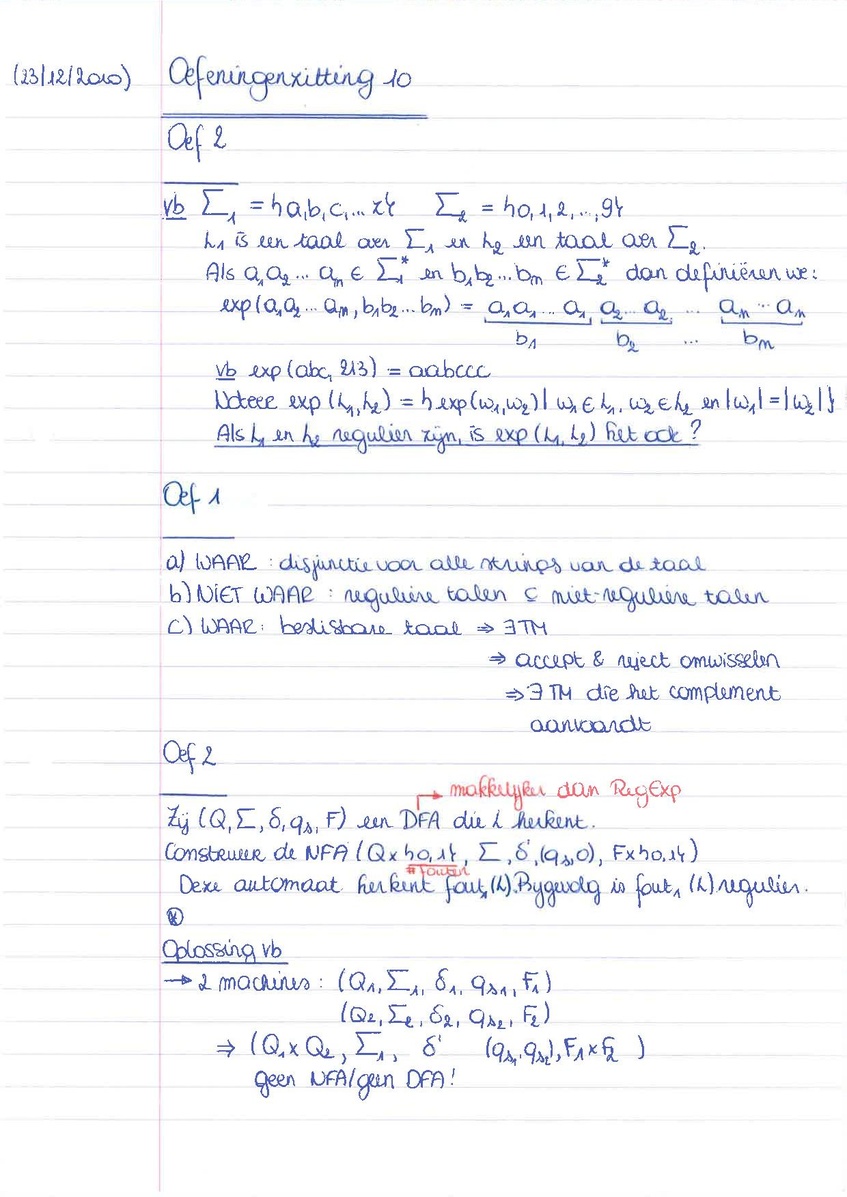 (23/12/2010) Oefeningenzitting 10
Oef 2
vb Σ₁ = {a,b,c,... z} Σ₂ = {0,1,2,...,9}
L₁ is een taal over Σ₁ en L₂ een taal over Σ₂.
Als a₁a₂... aₙ ∈ Σ₁* en b₁b₂...bₙ ∈ Σ₂* dan definiëren we:
exp(a₁a₂... aₙ, b₁b₂...bₙ) = a₁a₁...a₁ a₂...a₂ ... aₙ...aₙ
b₁ b₂ ... bₙ
vb exp(abc, 213) = aabccc
Noteer exp(L₁,L₂) = {exp(w₁,w₂)| w₁ ∈ L₁, w₂ ∈ L₂ en |w₁| = |w₂|}
Als L₁ en L₂ regulier zijn, is exp(L₁, L₂) het ook?
Oef 1
a) WAAR : disjunctie voor alle strings van de taal
b) NIET WAAR : reguliere talen ⊆ niet-reguliere talen
c) WAAR: beslisbare taal ⇒ ∃TM
⇒ accept & reject omwisselen
⇒ ∃ TM die het complement
aanvaardt
Oef 2
makkelijker dan RegExp
Zij (Q, Σ, δ, qₛ, F) een DFA die L herkent.
Construeer de NFA (Q×{0,1}, Σ, δ', (qₛ,0), F×{0,1})
# fouten
Deze automaat herkent fout₁(L). Bijgevolg is fout₁ (L) regulier.
Oplossing vb
→ 2 machines : (Q₁, Σ₁, δ₁, qₛ₁, F₁)
(Q₂, Σ₂, δ₂, qₛ₂, F₂)
⇒ (Q₁×Q₂, Σ₁, δ' (qₛ₁,qₛ₂), F₁×F₂ )
geen NFA/geen DFA!